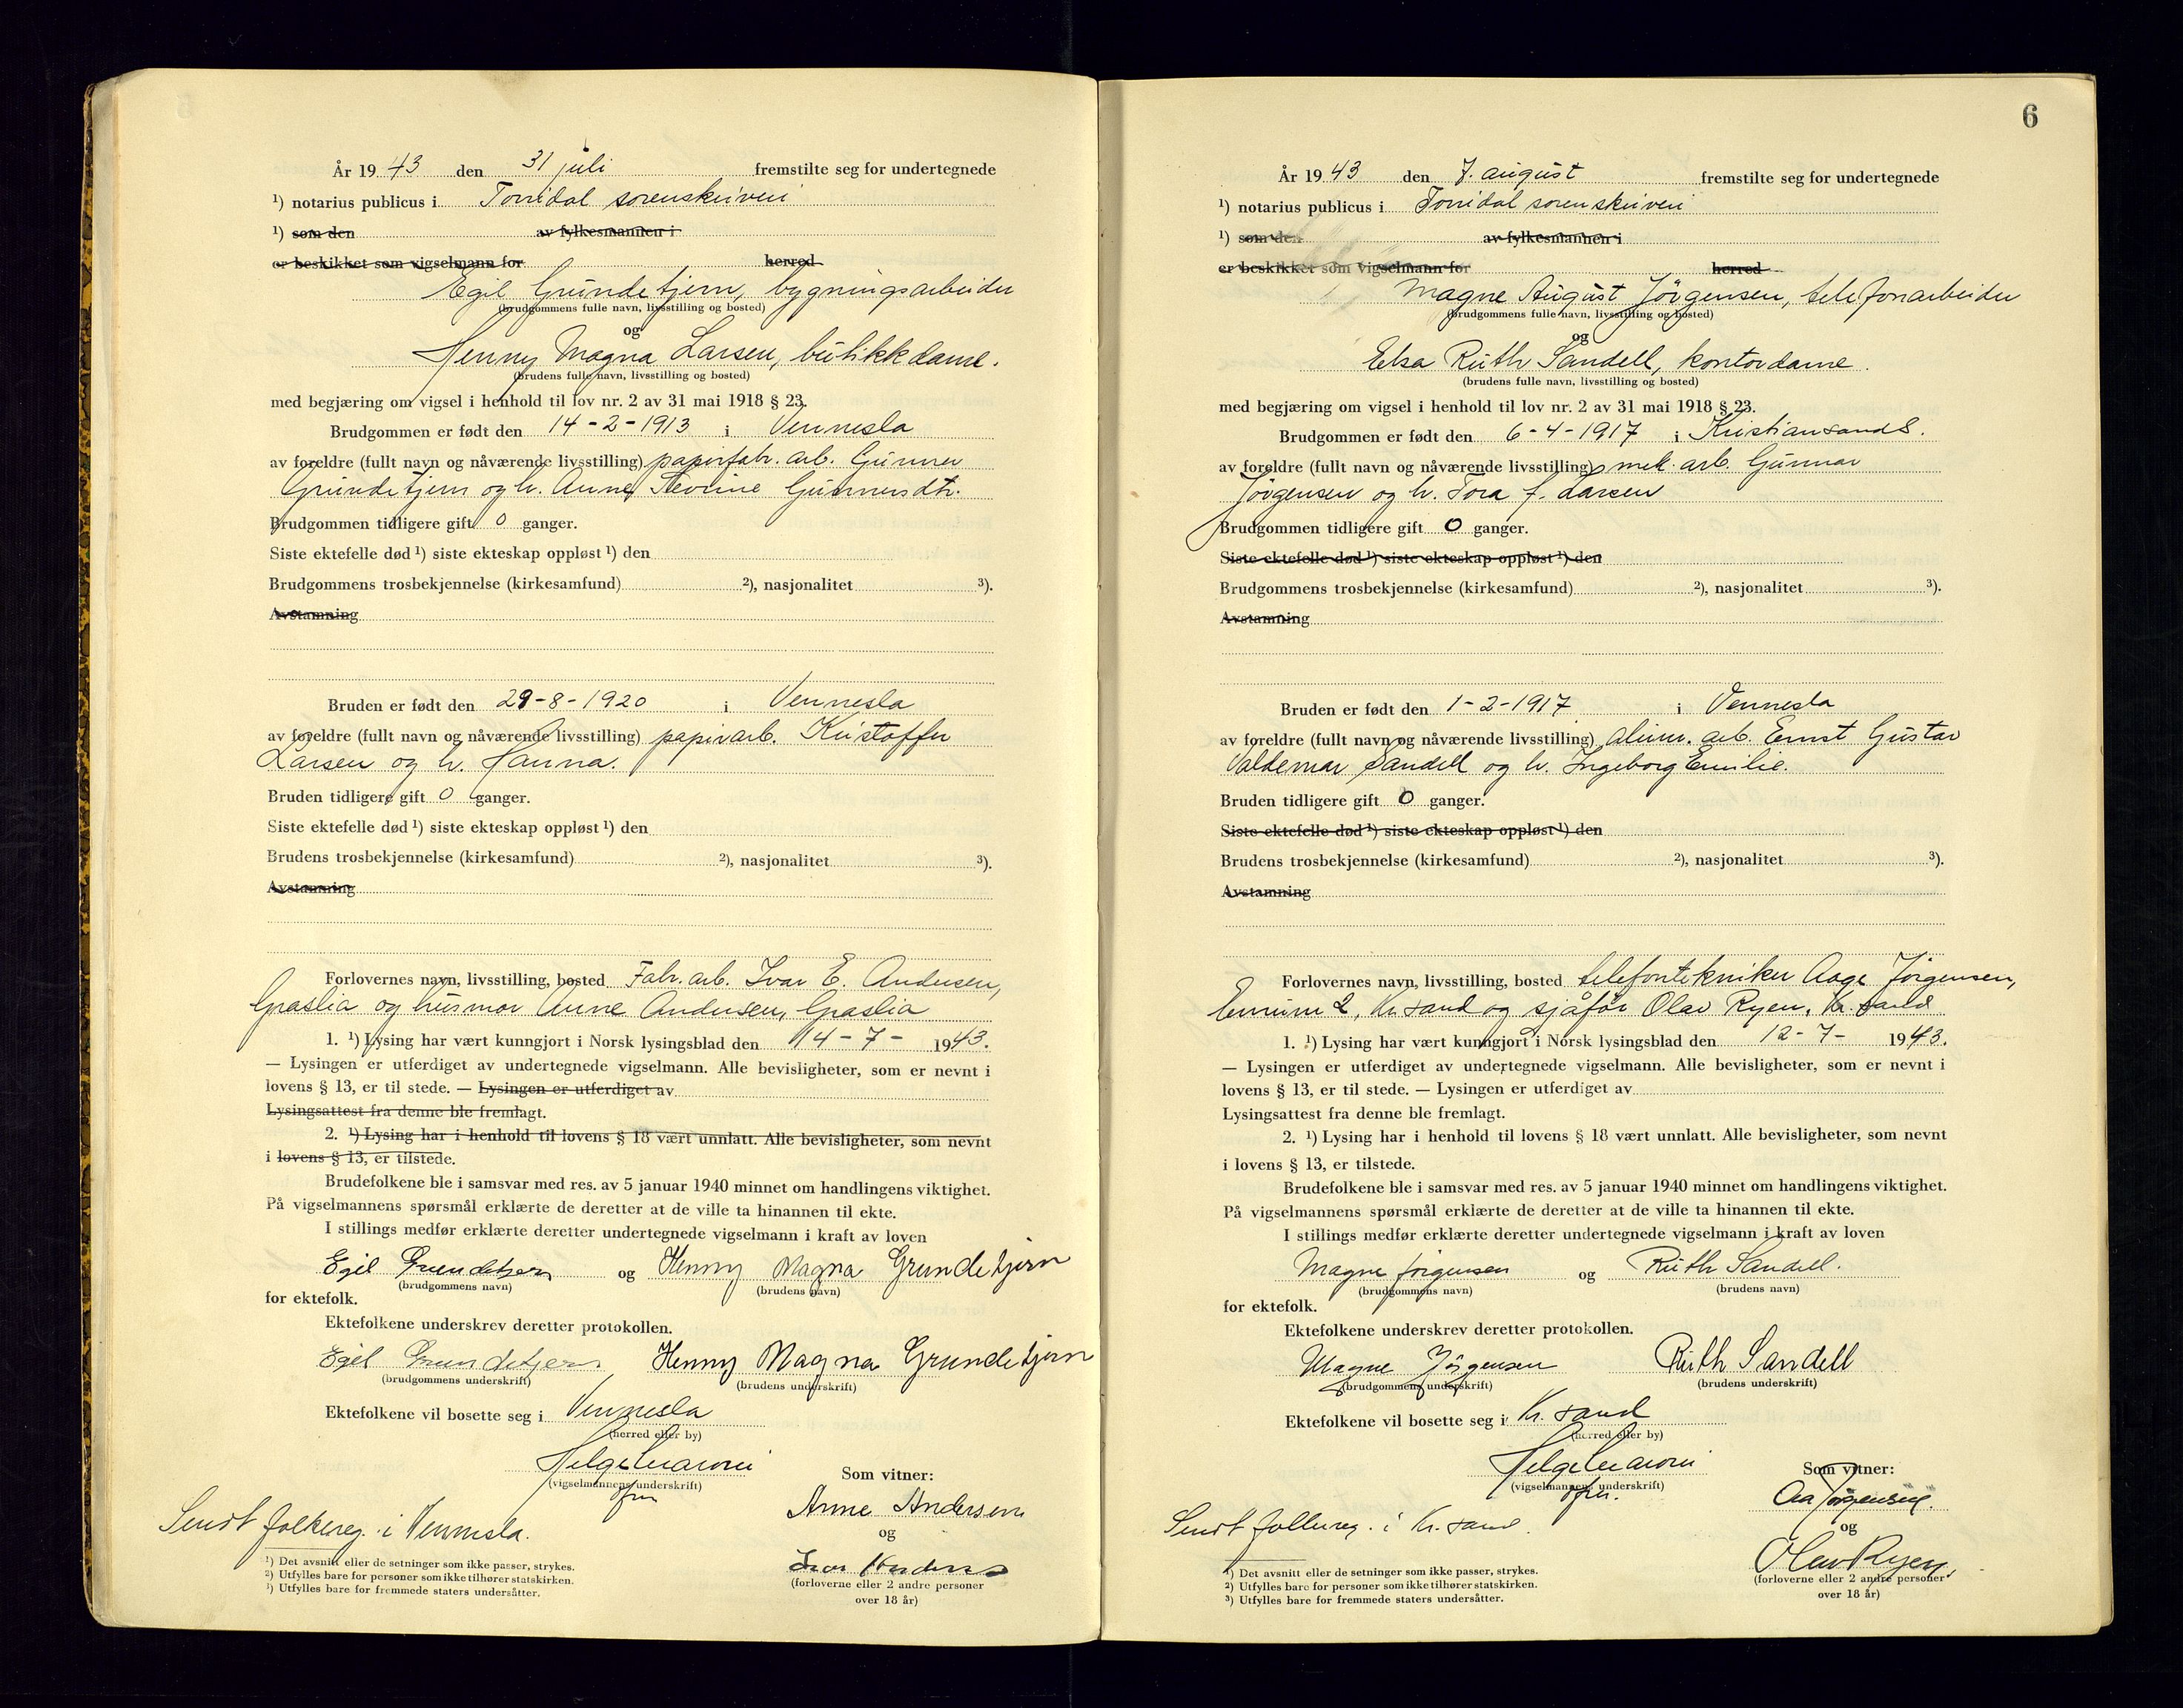 År 19 43 den 31 juli fremstilte seg for undertegnede
¹) notarius publicus i Torridal sorenskriveri
¹) som den av fylkesmannen i
er beskikket som vigselmann for herred
Egil Grundetjern, bygningsarbeider
(brudgommens fulle navn, livsstilling og bosted)
og
Henny Magna Larsen, butikkdame.
(brudens fulle navn, livsstilling og bosted)
med begjæring om vigsel i henhold til lov nr. 2 av 31 mai 1918 § 23.
Brudgommen er født den 14-2-1913 i Vennesla
av foreldre (fullt navn og nåværende livsstilling) papirfabr. arb. Gunner
Grundetjern og h. Anne Severine Gunnersdtr.
Brudgommen tidligere gift 0 ganger.
Siste ektefelle død ¹) siste ekteskap oppløst ¹) den
Brudgommens trosbekjennelse (kirkesamfund) ²), nasjonalitet ³).
Avstamning
Bruden er født den 29-8-1920 i Vennesla
av foreldre (fullt navn og nåværende livsstilling) papirarb. Kristoffer
Larsen og h. Hanna.
Bruden tidligere gift 0 ganger.
Siste ektefelle død ¹) siste ekteskap oppløst ¹) den
Brudens trosbekjennelse (kirkesamfund) ²), nasjonalitet ³).
Avstamning
Forlovernes navn, livsstilling, bosted Fabr. arb. Ivar E. Andersen,
Graslia og husmor Anne Andersen, Graslia
1. ¹) Lysing har vært kunngjort i Norsk lysingsblad den 14-7- 1943.
— Lysingen er utferdiget av undertegnede vigselmann. Alle bevisligheter, som er nevnt i
lovens § 13, er til stede. — Lysingen er utferdiget av
Lysingsattest fra denne ble fremlagt.
2. ¹) Lysing har i henhold til lovens § 18 vært unnlatt. Alle bevisligheter, som nevnt
i lovens § 13, er tilstede.
Brudefolkene ble i samsvar med res. av 5 januar 1940 minnet om handlingens viktighet.
På vigselmannens spørsmål erklærte de deretter at de ville ta hinannen til ekte.
I stillings medfør erklærte deretter undertegnede vigselmann i kraft av loven
Egil Grundetjern og Henny Magna Grundetjern
(brudgommens navn) (brudens navn)
for ektefolk.
Ektefolkene underskrev deretter protokollen.
Egil Grundetjern Henny Magna Grundetjern
(brudgommens underskrift) (brudens underskrift)
Ektefolkene vil bosette seg i Vennesla
(herred eller by)
Helge
(vigselmannens underskrift)
Som vitner:
Anne Andersen
og
Ivar Andersen
(forloverne eller 2 andre personer
over 18 år)
Sendt folkereg. i Vennesla.
¹) Det avsnitt eller de setninger som ikke passer, strykes.
²) Utfylles bare for personer som ikke tilhører statskirken.
³) Utfylles bare for fremmede staters undersåtter.
6
År 19 43 den 7. august fremstilte seg for undertegnede
¹) notarius publicus i Torridal sorenskriveri
¹) som den av fylkesmannen i
er beskikket som vigselmann for herred
Magne August Jörgensen, telefonarbeider
(brudgommens fulle navn, livsstilling og bosted)
og
Elsa Ruth Sandell, kontordame.
(brudens fulle navn, livsstilling og bosted)
med begjæring om vigsel i henhold til lov nr. 2 av 31 mai 1918 § 23.
Brudgommen er født den 6-4-1917 i Kristiansand S.
av foreldre (fullt navn og nåværende livsstilling) mek. arb. Gunnar
Jörgensen og h. Tora f. Larsen
Brudgommen tidligere gift 0 ganger.
Siste ektefelle død ¹) siste ekteskap oppløst ¹) den
Brudgommens trosbekjennelse (kirkesamfund) ²), nasjonalitet ³).
Avstamning
Bruden er født den 1-2-1917 i Vennesla
av foreldre (fullt navn og nåværende livsstilling) alum. arb. Ernst Gustav
Valdemar Sandell og h. Ingeborg Emilie.
Bruden tidligere gift 0 ganger.
Siste ektefelle død ¹) siste ekteskap oppløst ¹) den
Brudens trosbekjennelse (kirkesamfund) ²), nasjonalitet ³).
Avstamning
Forlovernes navn, livsstilling, bosted telefontekniker Aage Jörgensen,
2, Kr. sand og sjåför Olav Ryen, Kr. sand
1. ¹) Lysing har vært kunngjort i Norsk lysingsblad den 12-7- 1943.
— Lysingen er utferdiget av undertegnede vigselmann. Alle bevisligheter, som er nevnt i
lovens § 13, er til stede. — Lysingen er utferdiget av
Lysingsattest fra denne ble fremlagt.
2. ¹) Lysing har i henhold til lovens § 18 vært unnlatt. Alle bevisligheter, som nevnt
i lovens § 13, er tilstede.
Brudefolkene ble i samsvar med res. av 5 januar 1940 minnet om handlingens viktighet.
På vigselmannens spørsmål erklærte de deretter at de ville ta hinannen til ekte.
I stillings medfør erklærte deretter undertegnede vigselmann i kraft av loven
Magne Jörgensen og Ruth Sandell.
(brudgommens navn) (brudens navn)
for ektefolk.
Ektefolkene underskrev deretter protokollen.
Magne Jörgensen Ruth Sandell
(brudgommens underskrift) (brudens underskrift)
Ektefolkene vil bosette seg i Kr. sand
(herred eller by)
Helge
(vigselmannens underskrift)
Som vitner:
Aa Jörgensen.
og
Olav Ryen.
(forloverne eller 2 andre personer
over 18 år)
Sendt folkereg. i Kr. sand.
¹) Det avsnitt eller de setninger som ikke passer, strykes.
²) Utfylles bare for personer som ikke tilhører statskirken.
³) Utfylles bare for fremmede staters undersåtter.